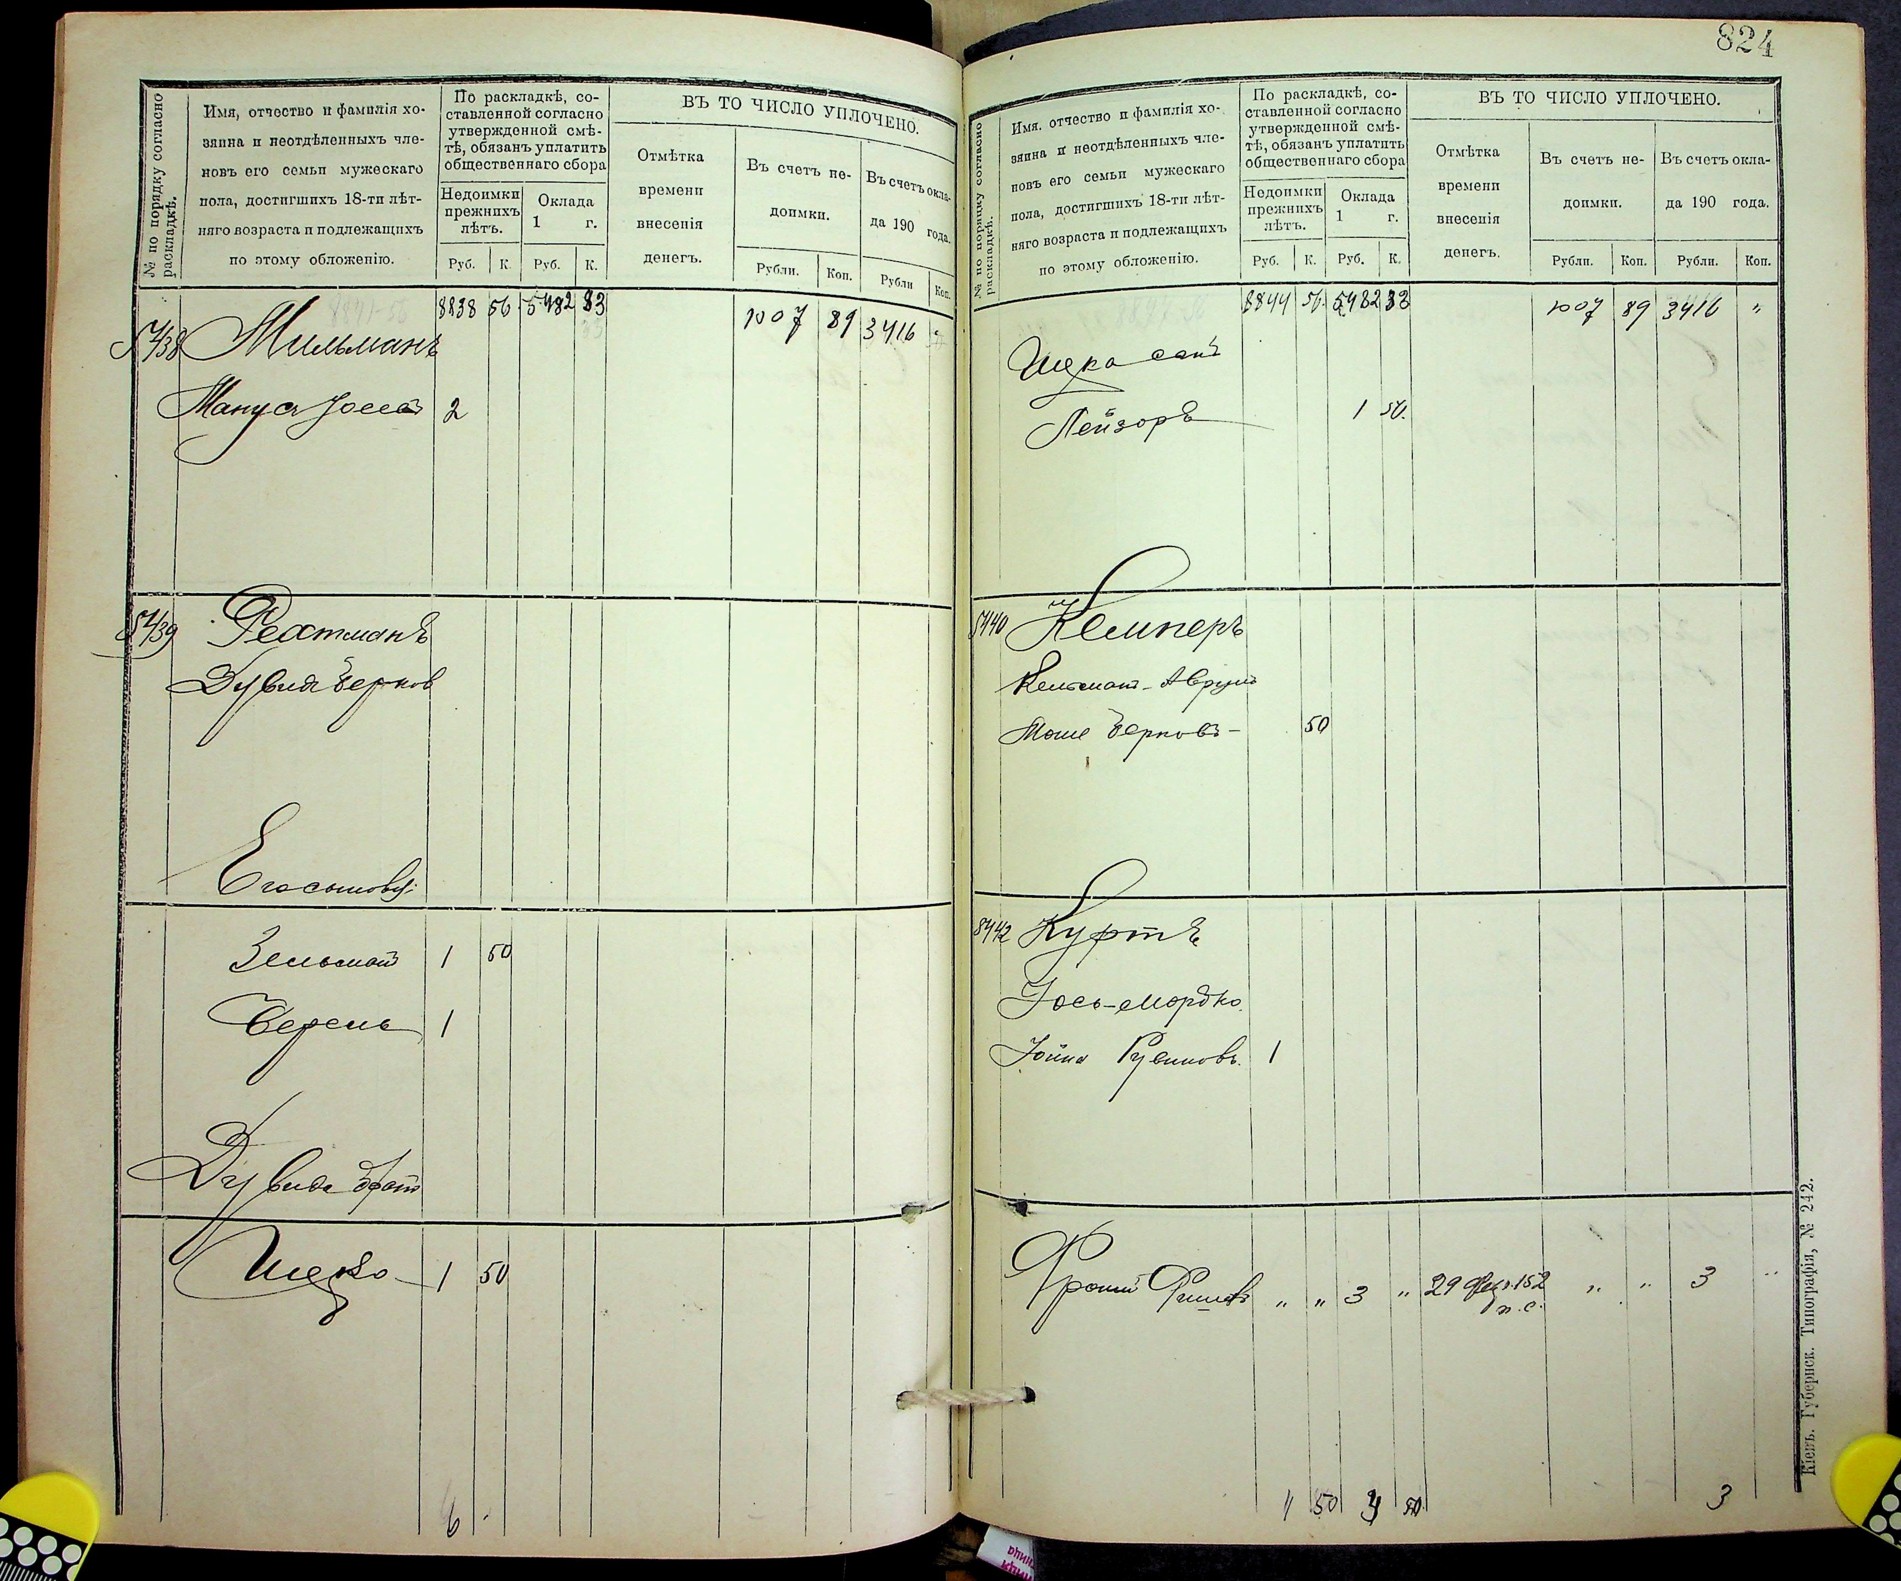 824
№ по порядку согласно
раскладкѣ.
Имя, отчество и фамилія хо-
зяина и неотдѣленныхъ чле-
новъ его семьи мужескаго
пола, достигшихъ 18-ти лѣт-
няго возраста и подлежащихъ
по этому обложенію.
По раскладкѣ, со-
ставленной согласно
утвержденной смѣ-
тѣ, обязанъ уплатить
общественнаго сбора
Недоимки
прежнихъ
лѣтъ.
Оклада
1 г.
Руб. К. Руб. К.
ВЪ ТО ЧИСЛО УПЛОЧЕНО.
Отмѣтка
времени
внесенія
денегъ.
Въ счетъ не-
доимки.
Въ счетъ окла-
да 190 года.
Рубли. Коп. Рубли Коп.
8838 56 5482 83 1007 89 3416
5438 Мильманъ
2
5439
Дувидъ Берков
Зельман 1 50
Берель 1
Дувида брат
Ицко 1 50
6
№ по порядку согласно
раскладкѣ.
Имя, отчество и фамилія хо-
зяина и неотдѣленныхъ чле-
новъ его семьи мужескаго
пола, достигшихъ 18-ти лѣт-
няго возраста и подлежащихъ
по этому обложенію.
По раскладкѣ, со-
ставленной согласно
утвержденной смѣ-
тѣ, обязанъ уплатить
общественнаго сбора
Недоимки
прежнихъ
лѣтъ.
Оклада
1 г.
Руб. К. Руб. К.
ВЪ ТО ЧИСЛО УПЛОЧЕНО.
Отмѣтка
времени
внесенія
денегъ.
Въ счетъ не-
доимки.
Въ счетъ окла-
да 190 года.
Рубли. Коп. Рубли. Коп.
8844 56 5482 83 1007 89 3416 "
Ицка сынъ
Лейзоръ 1 50.
5440 Кемперъ
Мошe Берковъ - 50
5442 Куртъ
Іось-Мордко
Іойна Рувиновъ. 1
" " 3 " 29 152 " " 3 "
п. с.
1 50 4 50 3
Кіевъ. Губернск. Типографія, № 242.